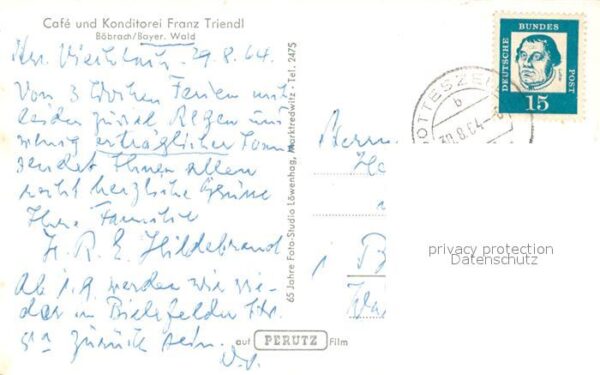 Café und Konditorei Franz Triendl
Böbrach/Bayer. Wald
29.8.64.
Von 3 Wochen Ferien mit
leider zuviel Regen und
wenig erträglicher Sonne
sendet Ihnen allen
recht herzliche Grüsse
Ihre Familie
H. R. E. Hildebrand
Ab 1.9. werden wir wie-
der in Bielefelder Str.
zurück sein.
65 Jahre Foto-Studio Löwenhag, Marktredwitz · Tel. 2475
auf PERUTZ Film
DEUTSCHE BUNDES POST
15
GOTTESZELL
b
30.8.64
privacy protection
Datenschutz